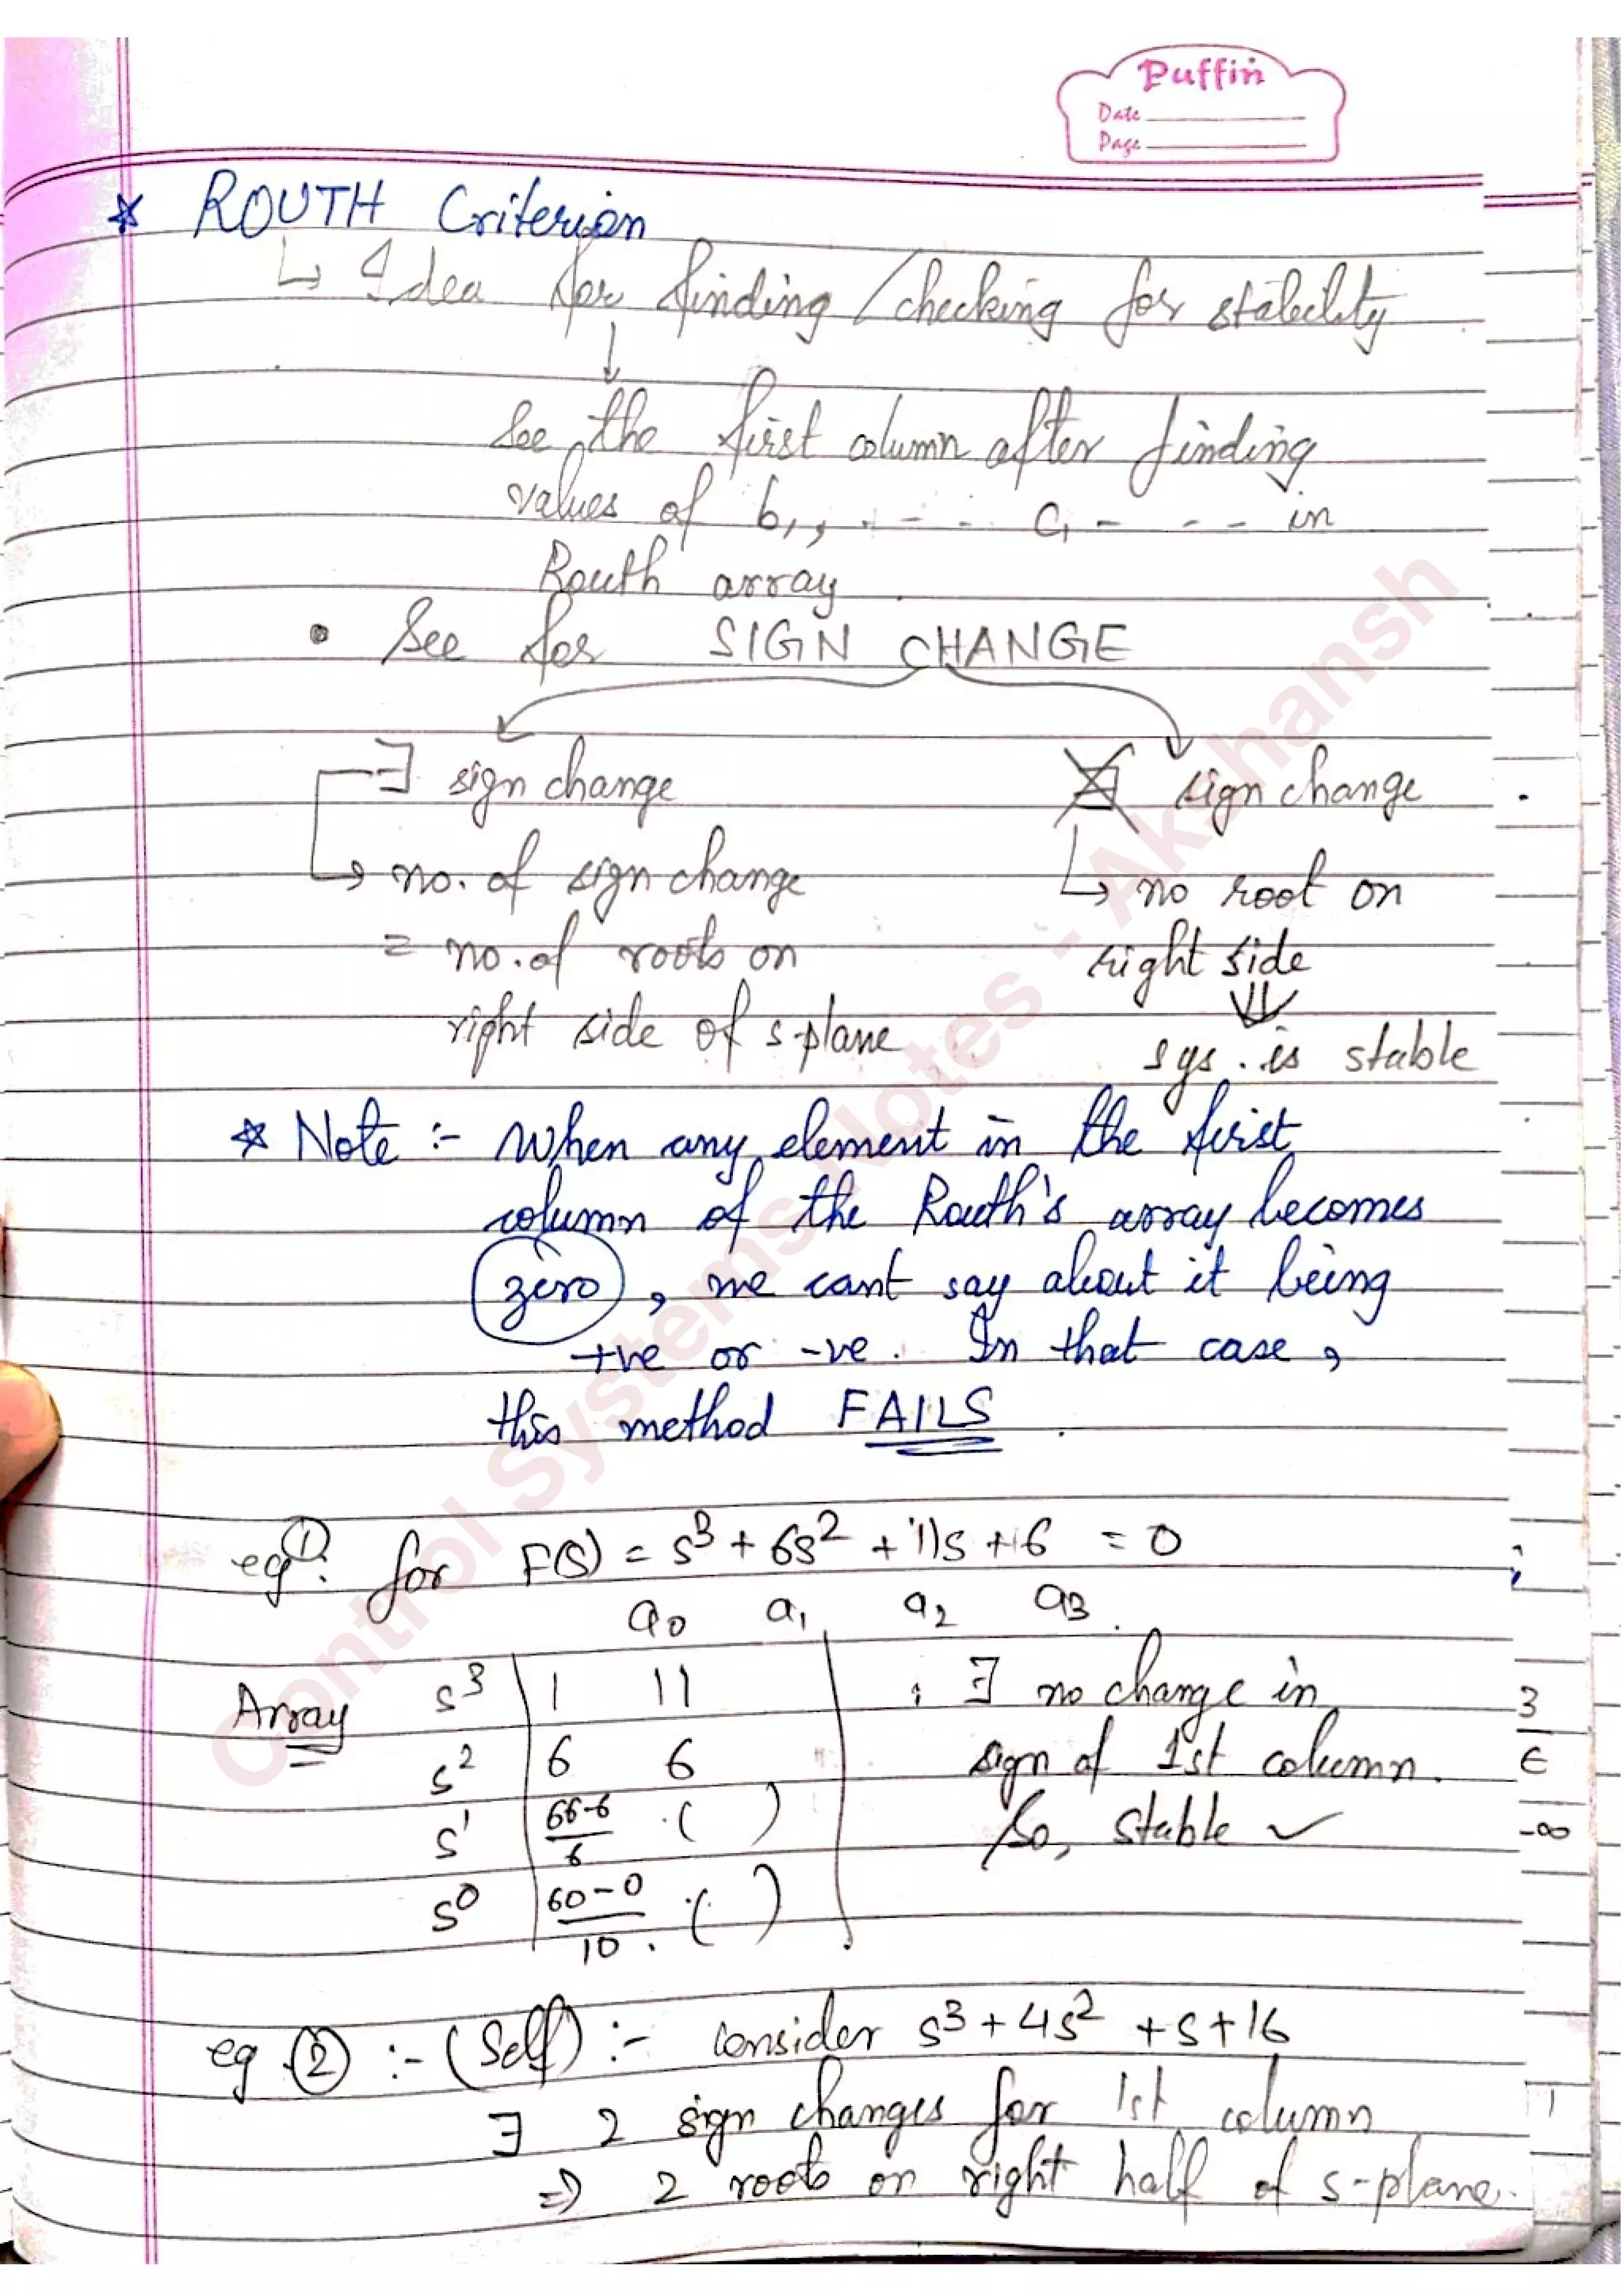 Puffin
Date
Page
* ROUTH Criterion
↳ Idea for finding/checking for stability
↓
See the first column after finding
values of b₁, , . - - . C₁ - - - - in
Routh array
• See for SIGN CHANGE
∃ sign change
↳ no. of sign change
= no. of roots on
right side of s-plane
∄ sign change
↳ no root on
right side
⇓
sys. is stable
* Note :- When any element in the first
column of the Routh's array becomes
zero, we cant say about it being
+ve or -ve. In that case,
this method FAILS
eg ①: for F(s) = s³ + 6s² + 11s + 6 = 0
a₀ a₁ a₂ a₃
Array s³ | 1 11
s² | 6 6
s¹ | 66-6/6 . ( )
s⁰ | 60-0/10 . ( )
: ∃ no change in
sign of 1st column.
So, stable ✓
3
E
-∞
eg ② :- (Self) :- consider s³ + 4s² + s + 16
∃ 2 sign changes for 1st column
⇒ 2 roots on right half of s-plane.
Control Systems Notes - Akshansh